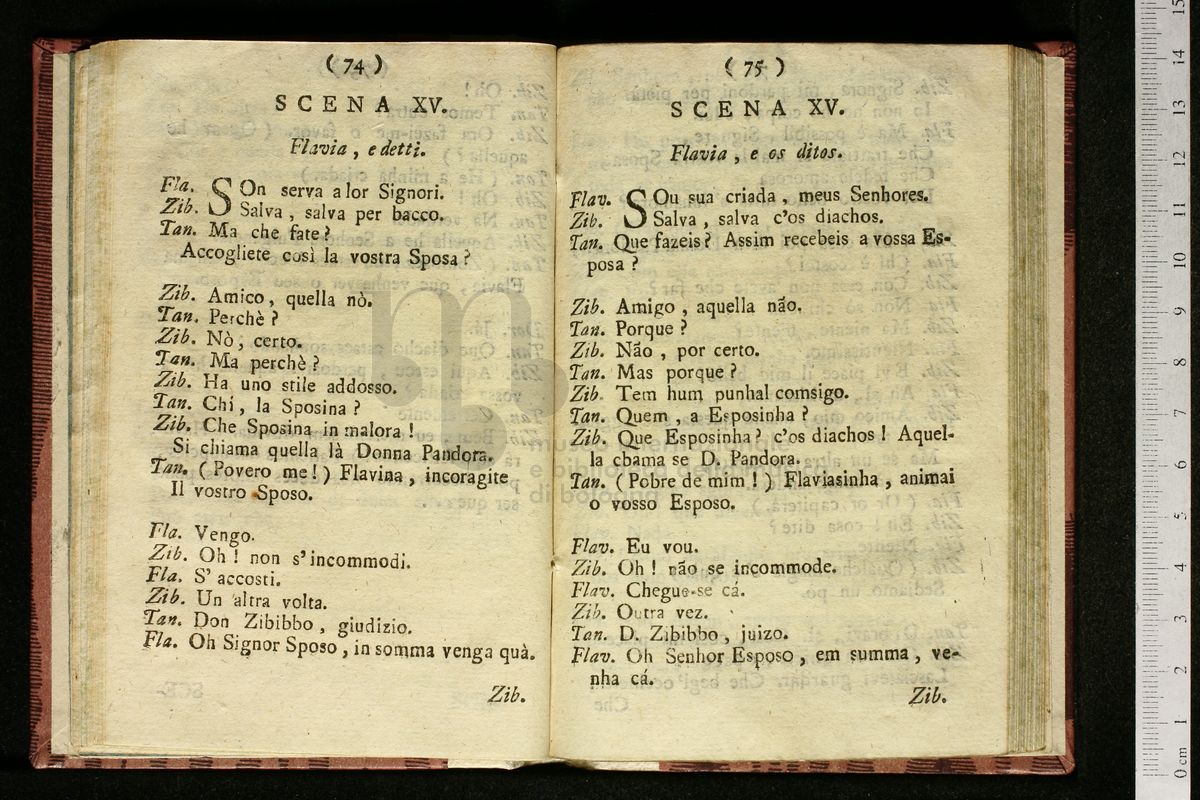 ( 74 )
SCENA XV.
Flavia , e detti.
Fla. SOn serva a lor Signori.
Zib. Salva , salva per bacco.
Tan. Ma che fate ?
Accogliete così la vostra Sposa ?
Zib. Amico, quella nò.
Tan. Perchè ?
Zib. Nò, certo.
Tan. Ma perchè ?
Zib. Ha uno stile addosso.
Tan. Chí, la Sposina ?
Zib. Che Sposina in malora !
Si chiama quella là Donna Pandora.
Tan. ( Povero me ! ) Flavina , incoragite
Il vostro Sposo.
Fla. Vengo.
Zib. Oh ! non s'incommodi.
Fla. S' accosti.
Zib. Un altra volta.
Tan. Don Zibibbo , giudizio.
Fla. Oh Signor Sposo , in somma venga quà.
Zib.
( 75 )
SCENA XV.
Flavia , e os ditos.
Flav. SOu sua criada , meus Senhores.
Zib. Salva , salva c'os diachos.
Tan. Que fazeis ? Assim recebeis a vossa Es-
posa ?
Zib. Amigo , aquella não.
Tan. Porque ?
Zib. Não , por certo.
Tan. Mas porque ?
Zib. Tem hum punhal comsigo.
Tan. Quem , a Esposinha ?
Zib. Que Esposinha ? c'os diachos ! Aquel-
la chama se D. Pandora.
Tan. ( Pobre de mim ! ) Flaviasinha , animai
o vosso Esposo.
Flav. Eu vou.
Zib. Oh ! não se incommode.
Flav. Chegue-se cá.
Zib. Outra vez.
Tan. D. Zibibbo , juizo.
Flav. Oh Senhor Esposo , em summa , ve-
nha cá.
Zib.
0 cm 1 2 3 4 5 6 7 8 9 10 11 12 13 14 15